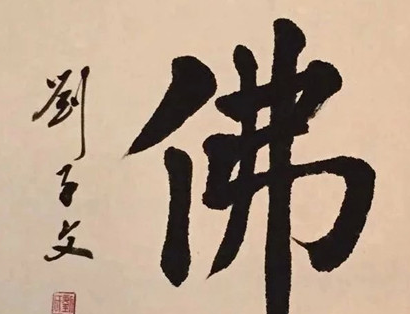 佛
劉子文